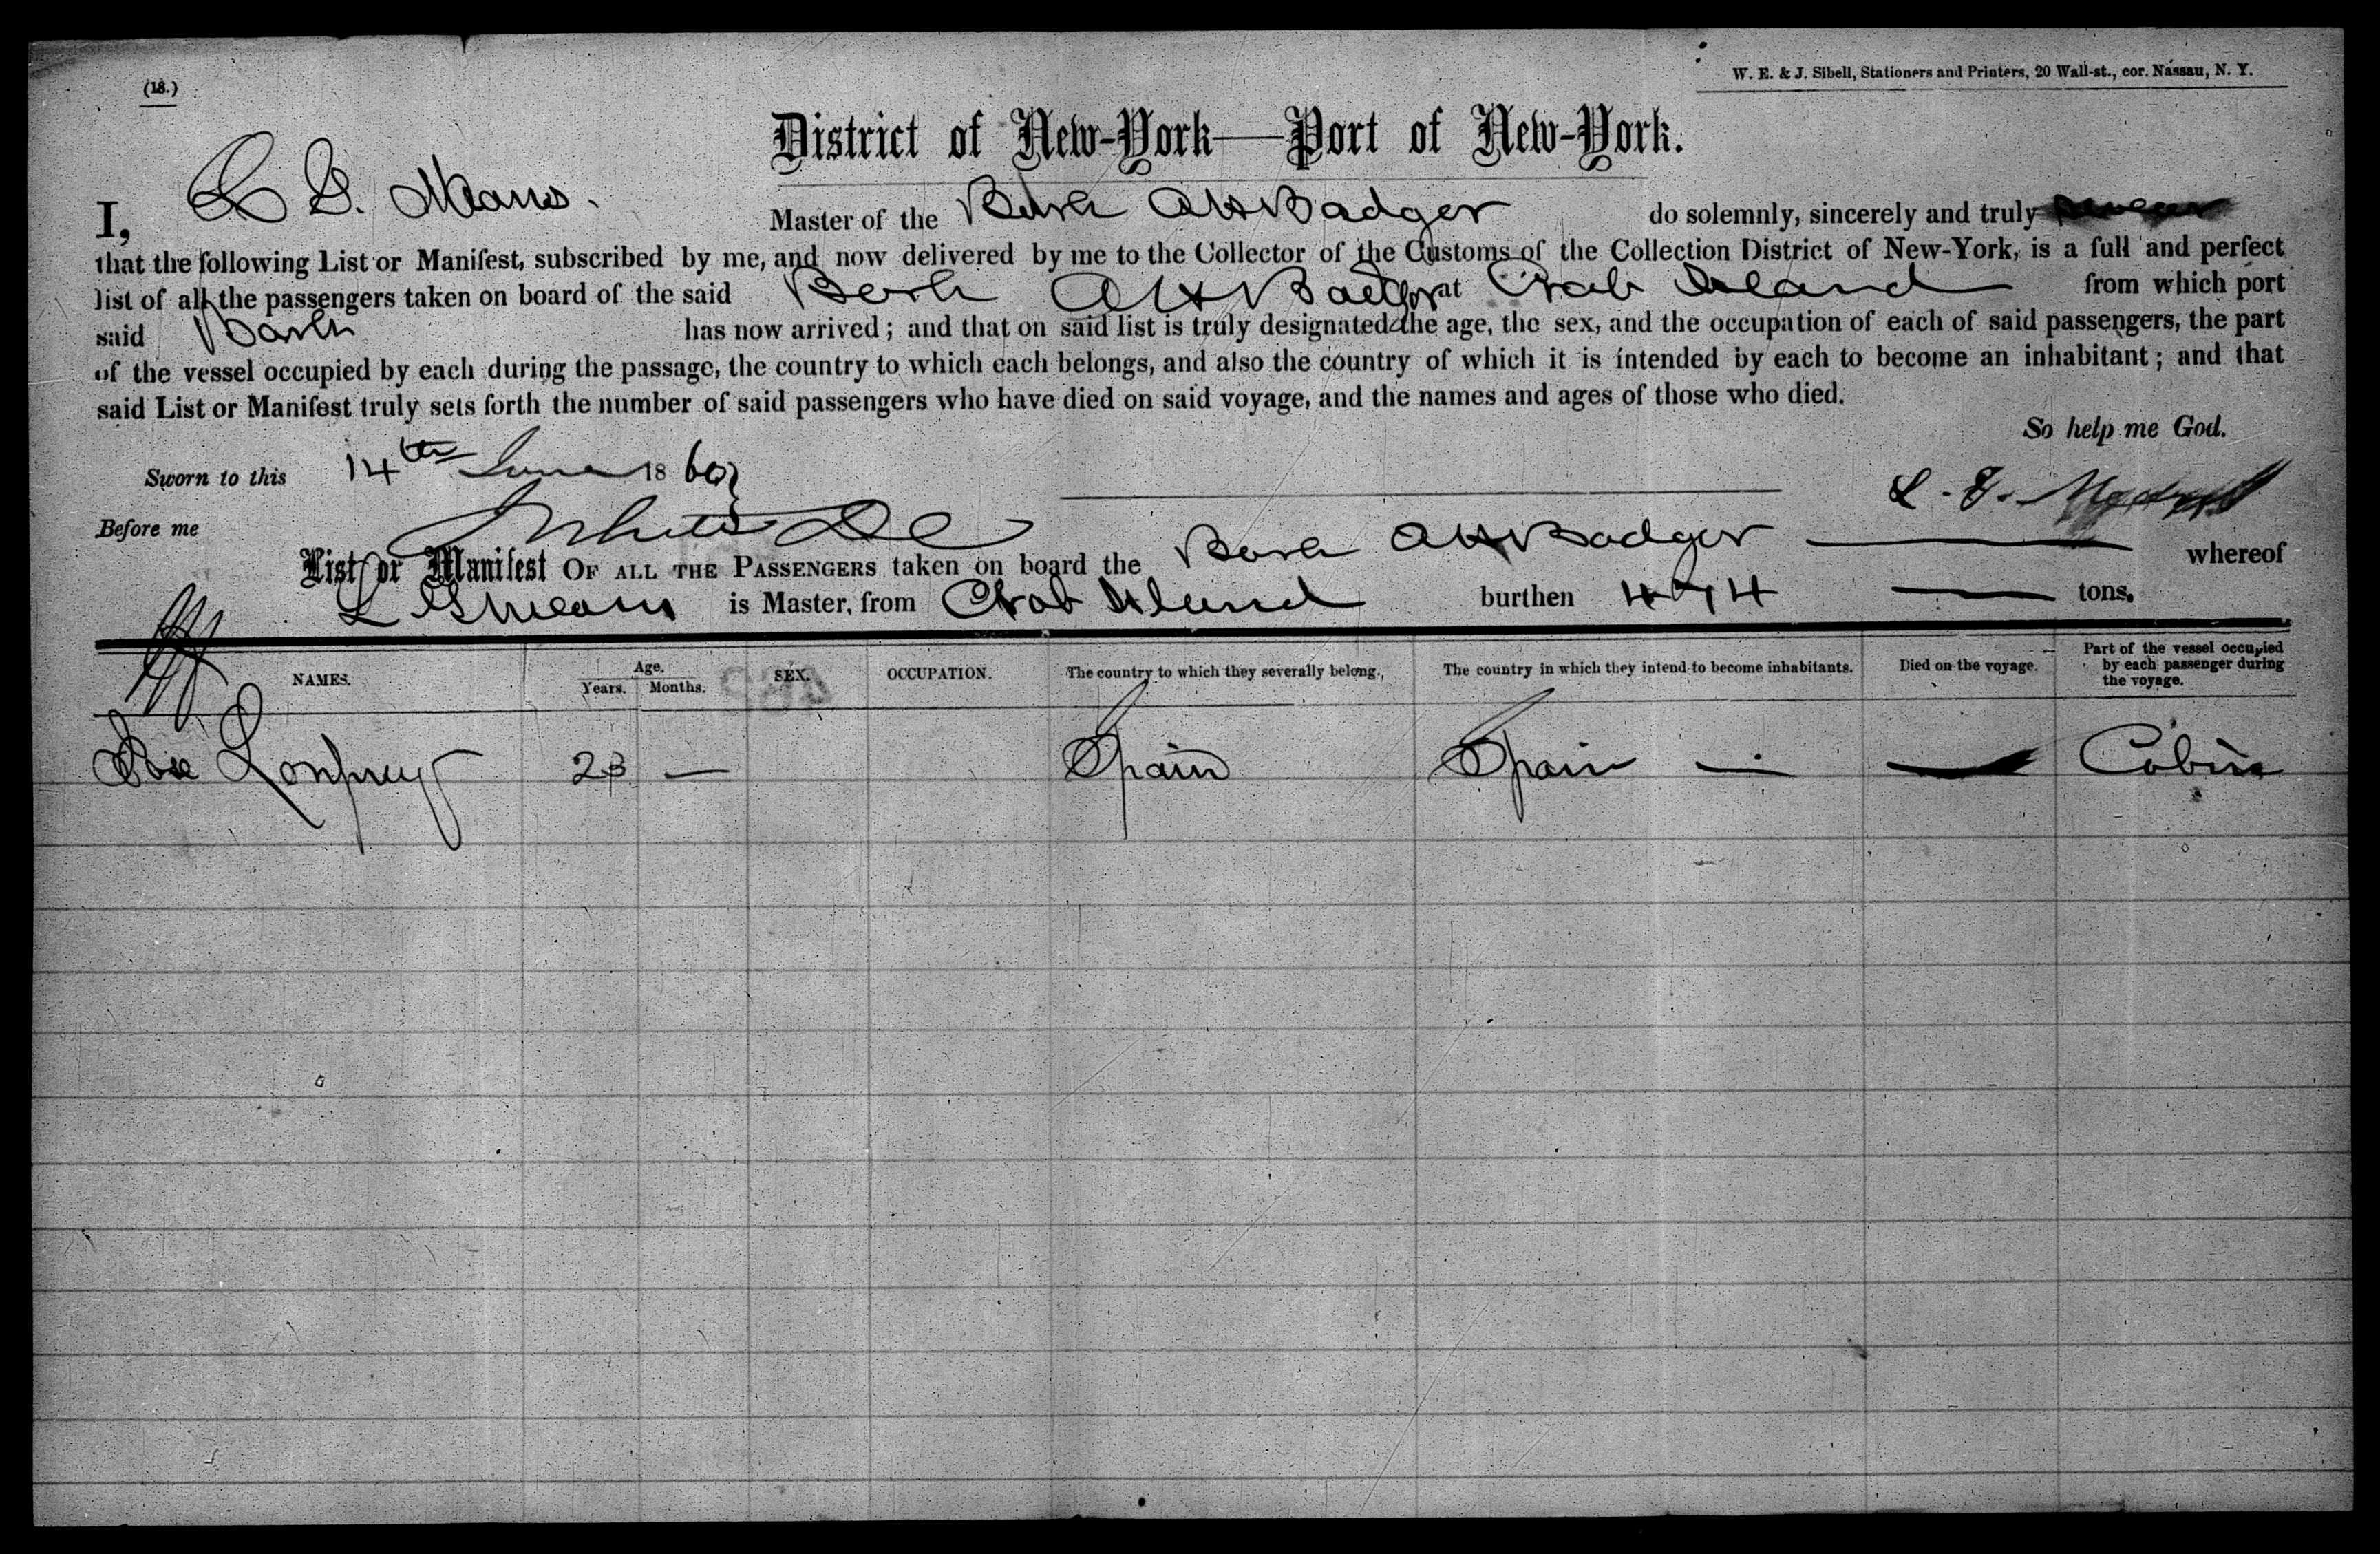 (18.)
W. E. & J. Sibell, Stationers and Printers, 20 Wall-st., cor. Nassau, N. Y.
District of New-York—Port of New-York.
I, L G. Means. Master of the Bark A H Badger do solemnly, sincerely and truly swear
that the following List or Manifest, subscribed by me, and now delivered by me to the Collector of the Customs of the Collection District of New-York, is a full and perfect
list of all the passengers taken on board of the said Bark A H Badger at Crab Island from which port
said Bark has now arrived; and that on said list is truly designated the age, the sex, and the occupation of each of said passengers, the part
of the vessel occupied by each during the passage, the country to which each belongs, and also the country of which it is intended by each to become an inhabitant; and that
said List or Manifest truly sets forth the number of said passengers who have died on said voyage, and the names and ages of those who died.
So help me God.
Sworn to this 14th June 1860
L. G.
Before me
List or Manifest OF ALL THE PASSENGERS taken on board the Bark A H Badger — whereof
L G Means is Master, from Crab Island burthen 474 — tons.
NAMES. Age. Years. Months. SEX. OCCUPATION. The country to which they severally belong. The country in which they intend to become inhabitants. Died on the voyage. Part of the vessel occupied by each passenger during the voyage.
23 — Spain Spain — — Cabin